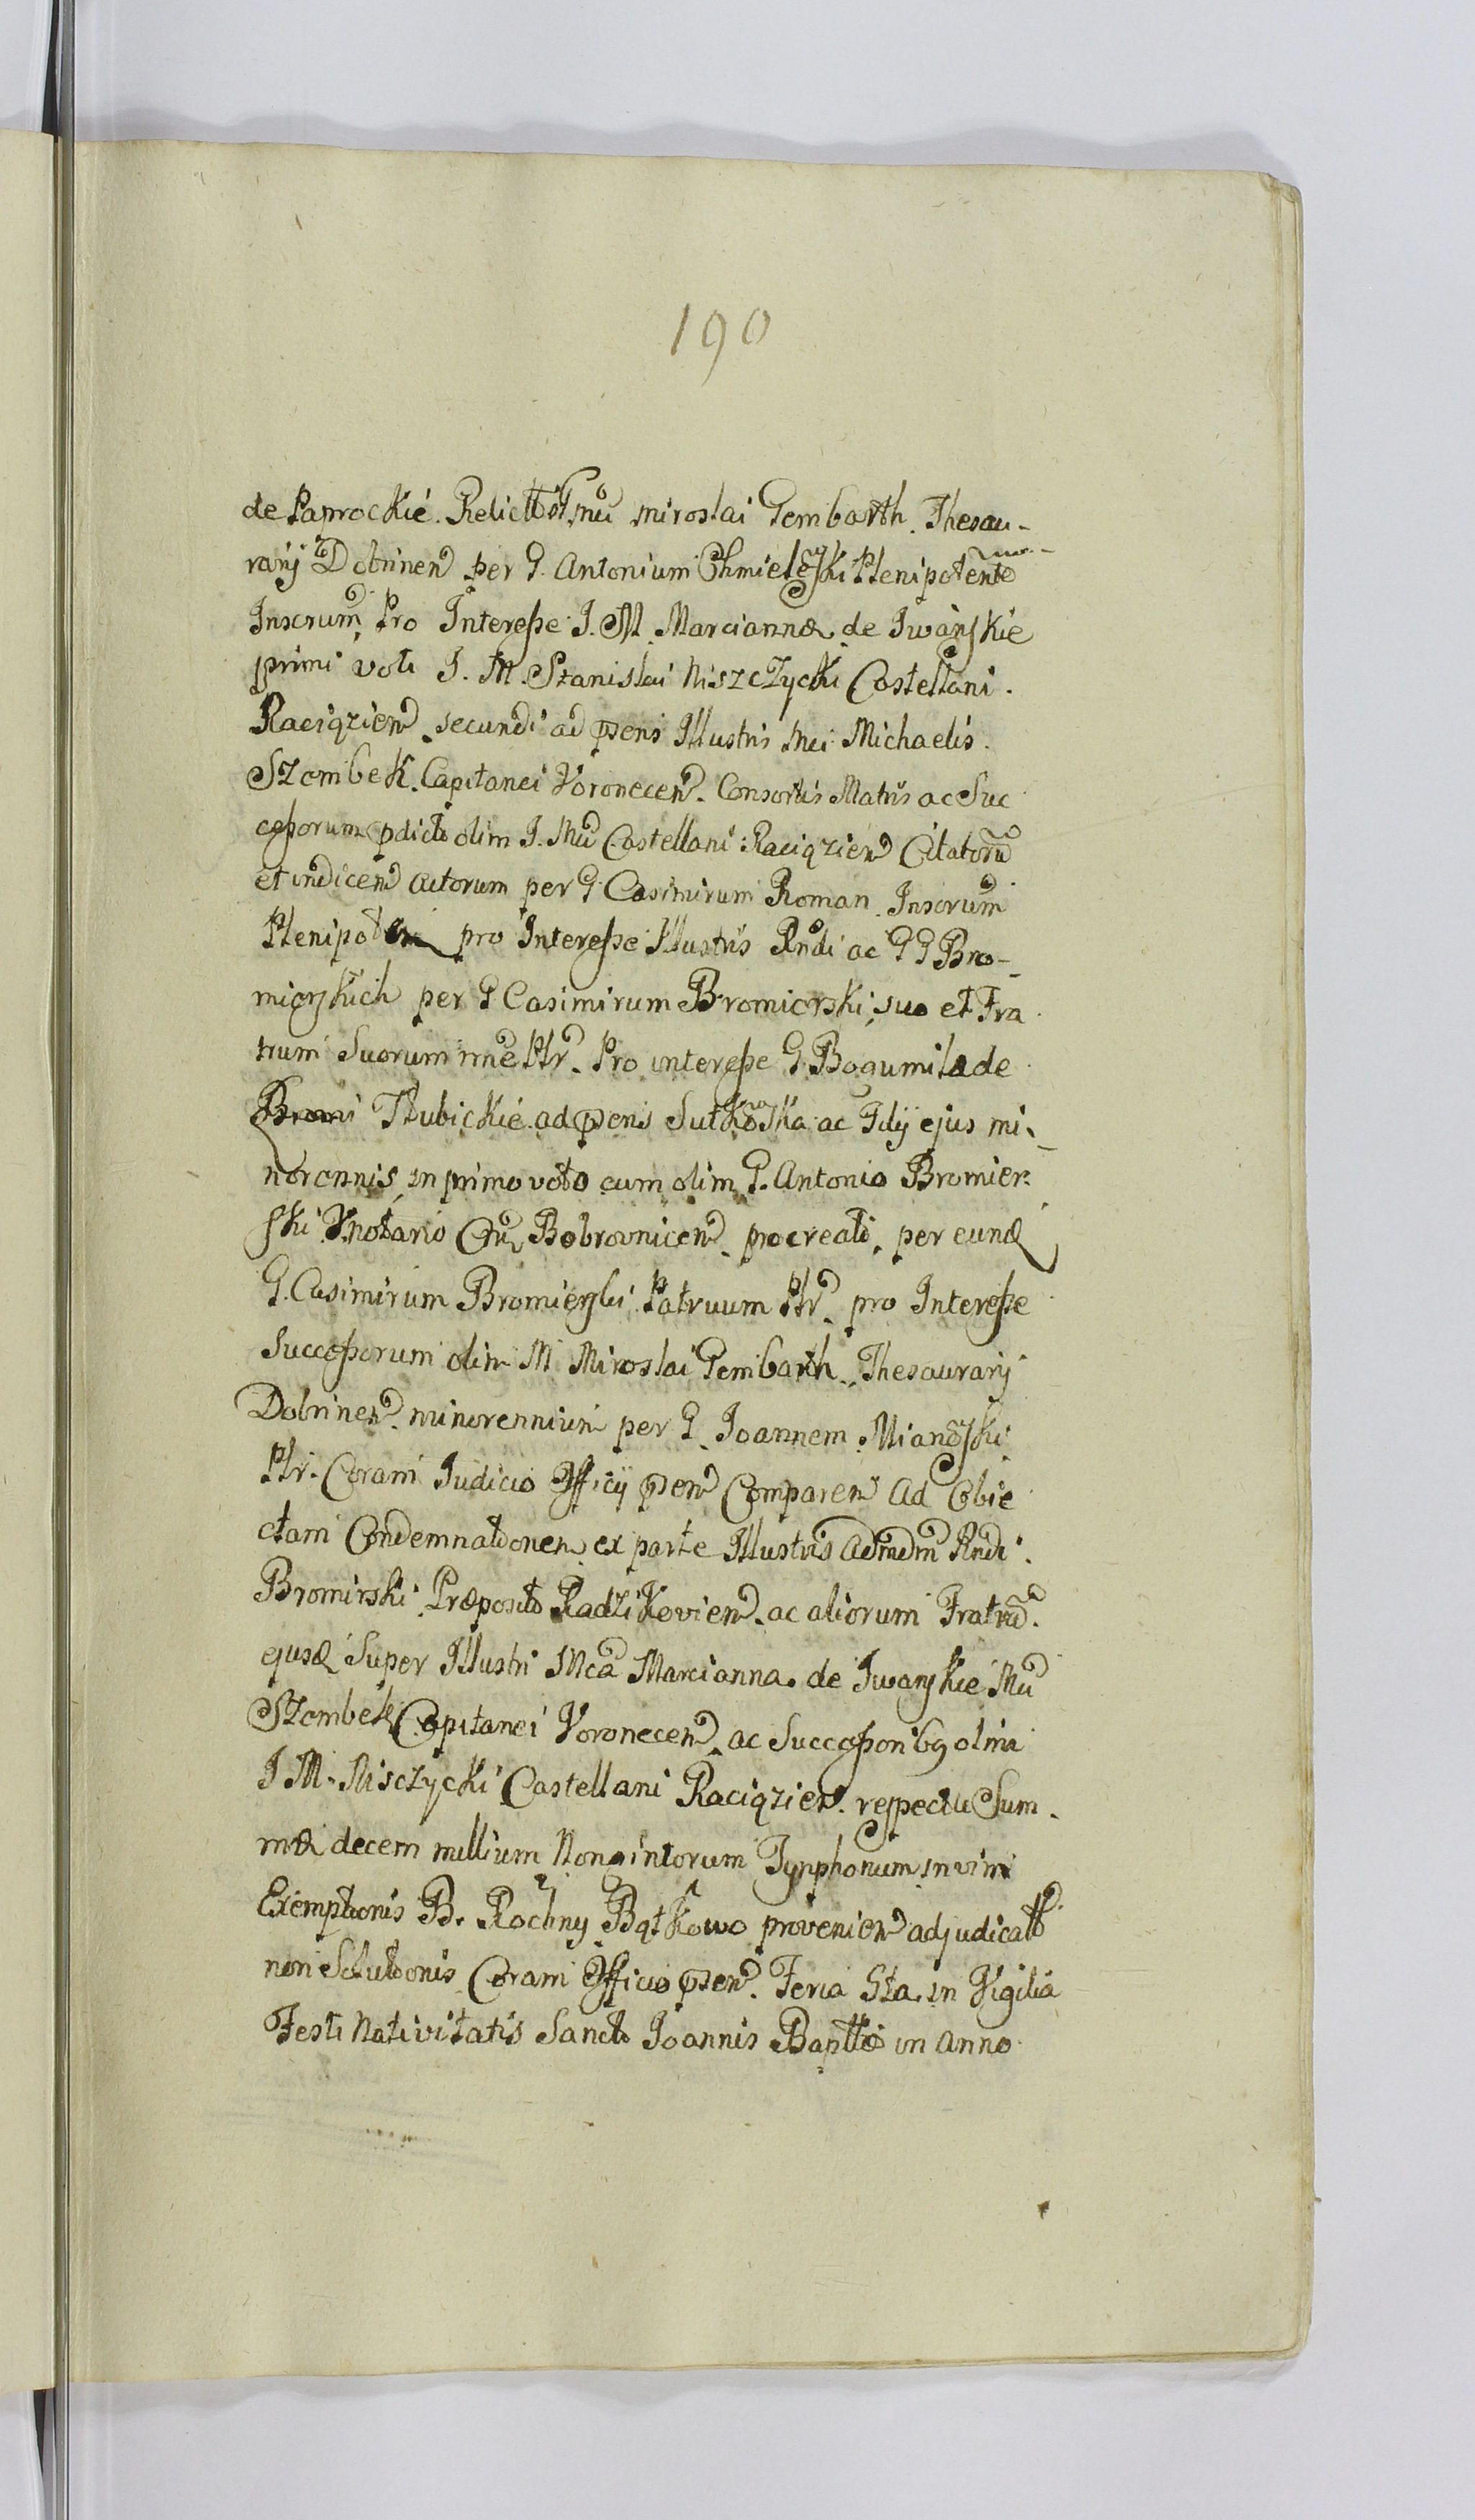 190
de Paprockie. Relictæ Mci Miroslai Gembarth Thesau-
rarij Dobrinen per G. Antonium Chmielewski Plenipotente
Inscrum, Pro Interesse I. M. Mariannæ de Iwańskie
primi voti I. M. Stanislai Niszczycki Castellani
Raciązien secundi ad pns Illustris Mci Michaelis
Szembek Capitanei Voronecen Consortis Matris ac Suc
cessorum pdicti olim I. Mci Castellani Raciązien Citatorū
et indicen Actorum per G Casimirum Roman Inscrum
Plenipoten pro Interesse Illustris Rndi ac GG Bro-
mierskich per G Casimirum Bromierski, suo et Fra
trum Suorum nne Plr. Pro interesse G. Bogumila de
Tłubickie ad pns Sułkowska ac Filij ejus mi-
norennis, in primo voto cum olim G. Antonio Bromier-
ski Vnotario Bobrovnicen procreati, per eund
G. Casimirum Bromierski Patruum Plr. pro Interesse
Successorum olim M Miroslai Gembarth Thesaurarij
Dobrinen minorennium per G Joannem Mianowski
Plr. Coram Iudicio Officij psen Comparen Ad Obie
ctam Condemnationem ex parte Illustris Admdm Rndi
Bromirski Præpositi Radzikovien ac aliorum Fratrū
ejusd Super Illustri Mca Marcianna de Iwanskie Mci
Szembek Capitanei Voronecen ac Successoribg olim
I M. Nisczycki Castellani Raciązien respectu Sum-
mæ decem millium Nongintorum Tynphonum in vim
Exemptionis B. Rochny Bątkowo provenien adjudicatæ
non Solutionis Coram Officio psen Feria 5ta in Vigilia
Festi Nativitatis Sancti Joannis Baptæ in Anno